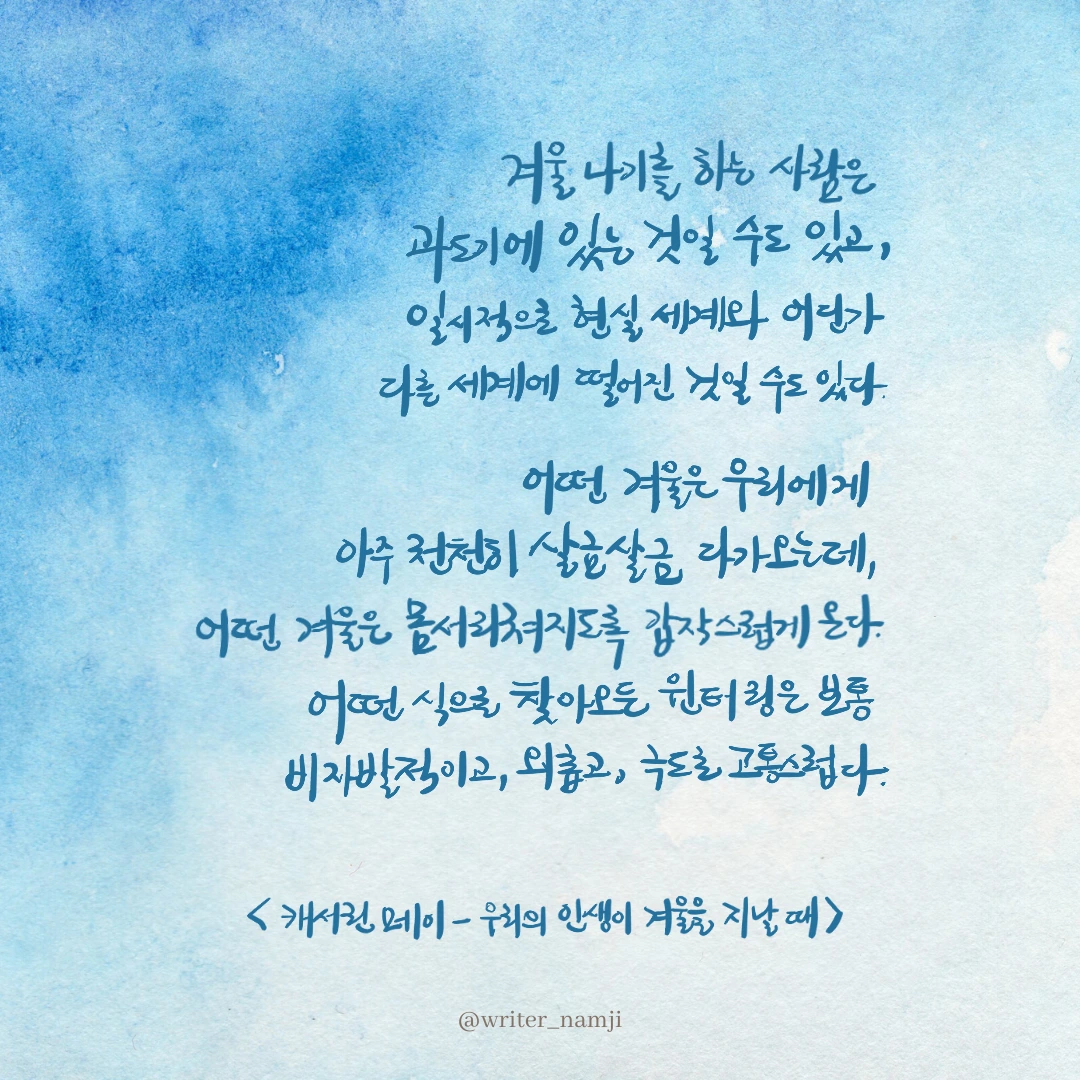 겨울 나기를 하는 사람은
과도기에 있는 것일 수도 있고,
일시적으로 현실 세계와 어딘가
다른 세계에 떨어진 것일 수도 있다.
어떤 겨울은 우리에게
아주 천천히 살금살금 다가오는데,
어떤 겨울은 몸서리쳐지도록 갑작스럽게 온다.
어떤 식으로 찾아오든 윈터링은 보통
비자발적이고, 외롭고, 극도로 고통스럽다.
< 캐서린 메이 - 우리의 인생이 겨울을 지날 때 >
@writer_namji